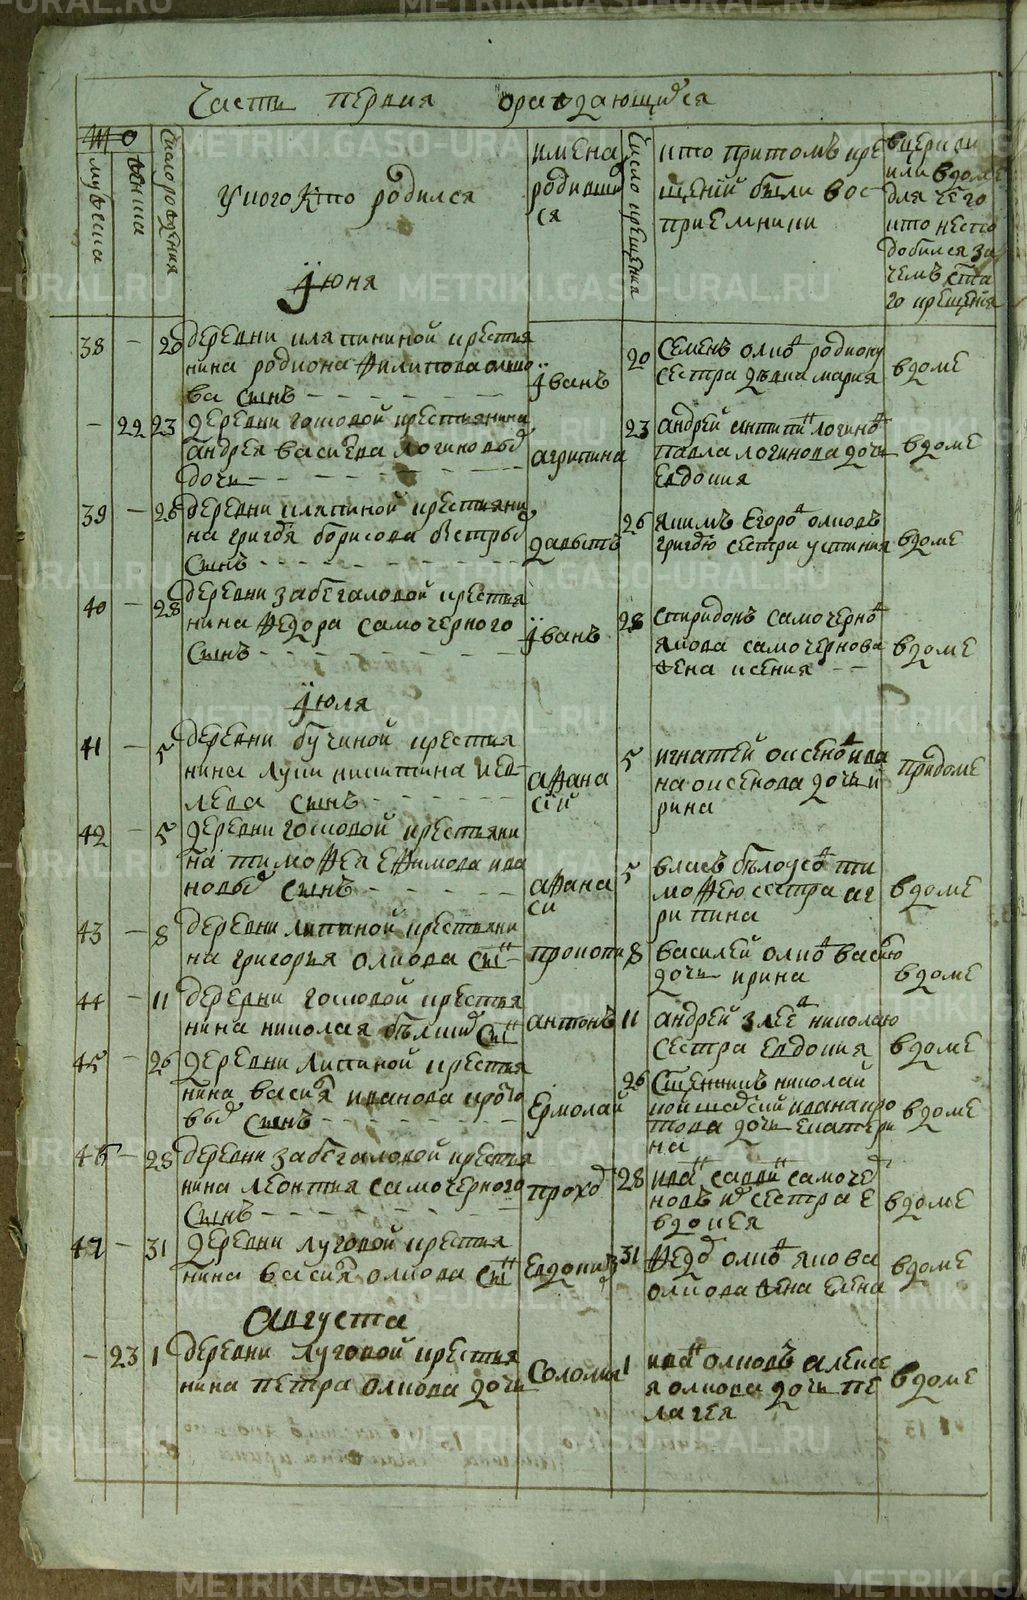 Части первия ораждающихся
Число рождения
мужеска
женска
У кого кто родился
имена
родивши
ся
Число крещения
кто притомъ кре
щении были вос
приемники
в церкви
или в доме
для чего
кто неспо
добился за
чемъ свята
го крещения
Ïюня
38 - 20 деревни кляпининой крестья
нина родиона филипова
ва сынъ
ïванъ
20 Семенъ родиону
сестра девка мария
в доме
- 22 23 деревни гостовой крестьянина
андрея василева логиновых
дочь
агрипина
23 андрей логинов
павла логинова дочь
евдокия
в доме
39 - 26 деревни крестьяни
на григорья борисова быстрых
сынъ
давыдъ
26 якимъ егоров олковъ
григорью сестра устиния
в доме
40 - 28 деревни забегаловой крестья
нина федора самочерного
сынъ
ïванъ
28 спиридонъ самочернов
якова самочернова
жена ксения
в доме
Ïюля
41 - 5 деревни бучиной крестья
нина луки никитина иев
лева сынъ
афана
сïй
5 игнатей аксенов ива
на аксенова дочь и
рина
придоме
42 - 5 деревни гостовой крестьяни
на тимофея ефимова ива
новых сынъ
афана
си
5 власъ белоусов ти
мофею сестра аг
рипина
в доме
43 - 8 деревни липиной крестьяни
на григорья олкова сын
прокопи
8 василей олков васию
дочь ирина
в доме
44 - 11 деревни гостовой крестья
нина николая сын
антонъ
11 андрей николаю
сестра евдокия
в доме
45 26 деревни липиной крестья
нина васия иванова
вых сынъ
ермолай
26 николай
ивана кро
това дочь екатери
на
в доме
46 - 28 деревни забегаловой крестья
нина леонтия самочерного
сынъ
проход
28 иван савин самоче
новъ их сестра е
вдокея
в доме
47 - 31 деревни луговой крестья
нина васия олкова сын
евдоким
31 федор олков якова
олкова жена елена
в доме
Августа
- 23 1 деревни луговой крестья
нина петра олкова дочь
Соломия
1 иван олковъ алексе
я олкова дочь пе
лагея
в доме
METRIKI.GASO-URAL.RU